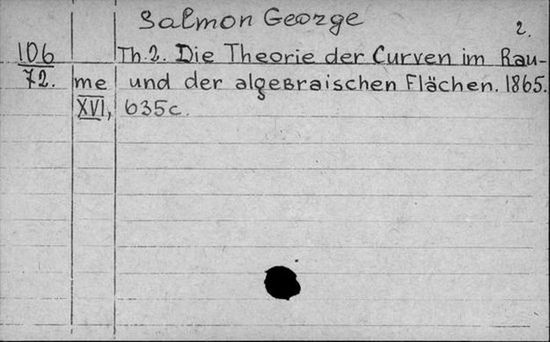 Salmon George
2.
106 Th.2. Die Theorie der Curven im Rau-
72. me und der algebraischen Flächen. 1865.
XVI, 635c.